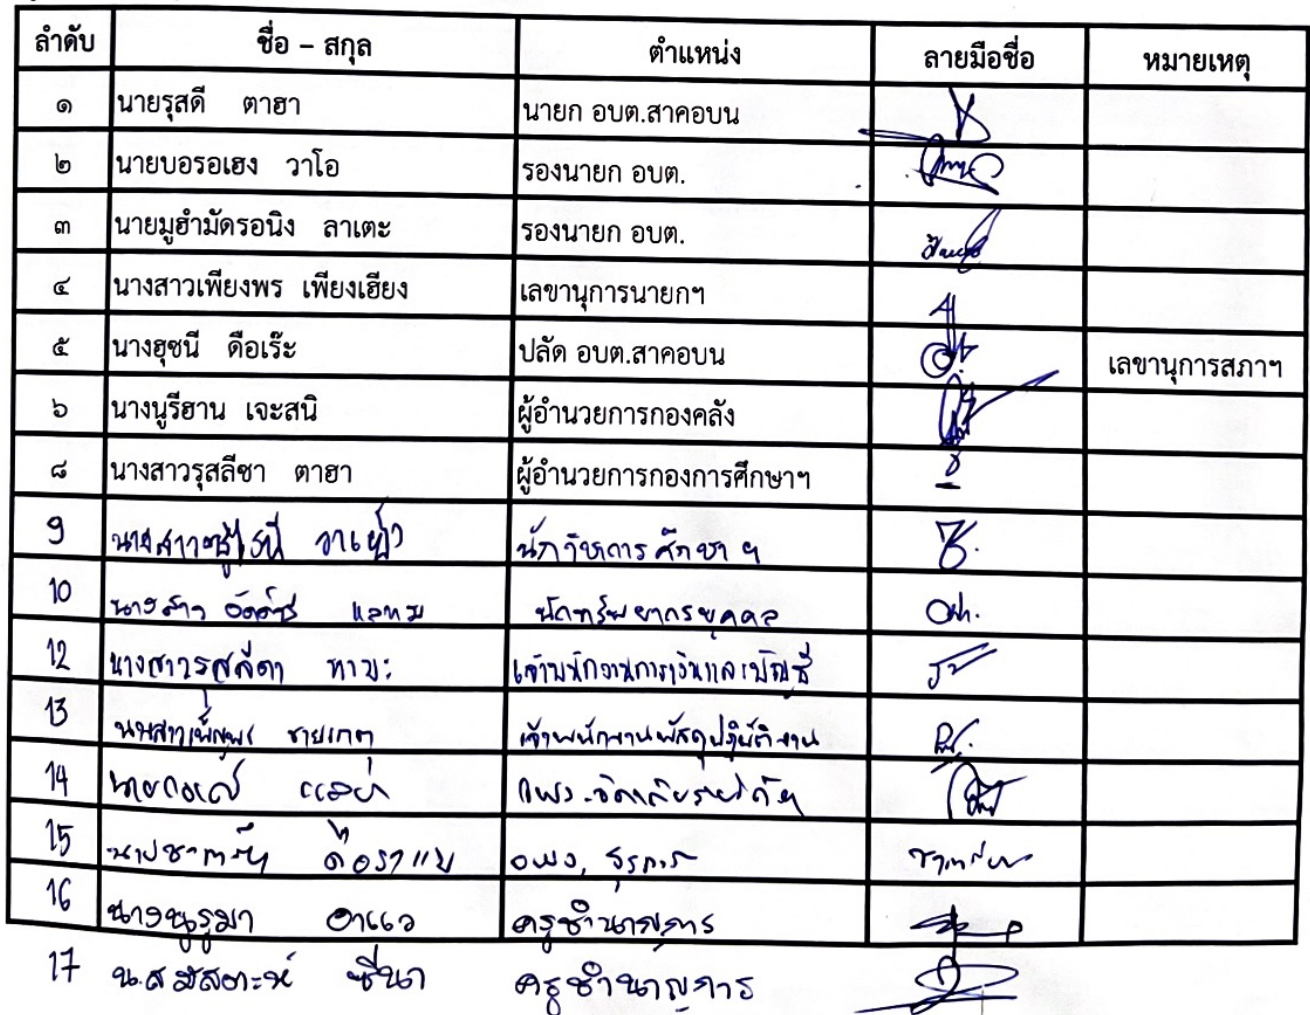 ลำดับ ชื่อ – สกุล ตำแหน่ง ลายมือชื่อ หมายเหตุ
๑ นายรุสดี ตาฮา นายก อบต.สาคอบน
๒ นายบอรอเฮง วาโอ รองนายก อบต.
๓ นายมูฮำมัดรอนิง ลาเตะ รองนายก อบต.
๔ นางสาวเพียงพร เพียงเฮียง เลขานุการนายกฯ
๕ นางฮุซนี ดือเร๊ะ ปลัด อบต.สาคอบน เลขานุการสภาฯ
๖ นางนูรีฮาน เจะสนิ ผู้อำนวยการกองคลัง
๘ นางสาวรุสลีซา ตาฮา ผู้อำนวยการกองการศึกษาฯ
9 นางสาว นักวิชาการศึกษาฯ
10 นางสาว นักทรัพยากรบุคคล
12 นางสาวรุสลีดา เจ้าพนักงานการเงินและบัญชี
13 เจ้าพนักงานพัสดุปฏิบัติงาน
14 จพง.จัดเก็บรายได้ฯ
15 ดือราแม จพง. ธุรการ
16 นางนูรูมา อาแว ครูชำนาญการ
17 น.ส ซีนา ครูชำนาญการ